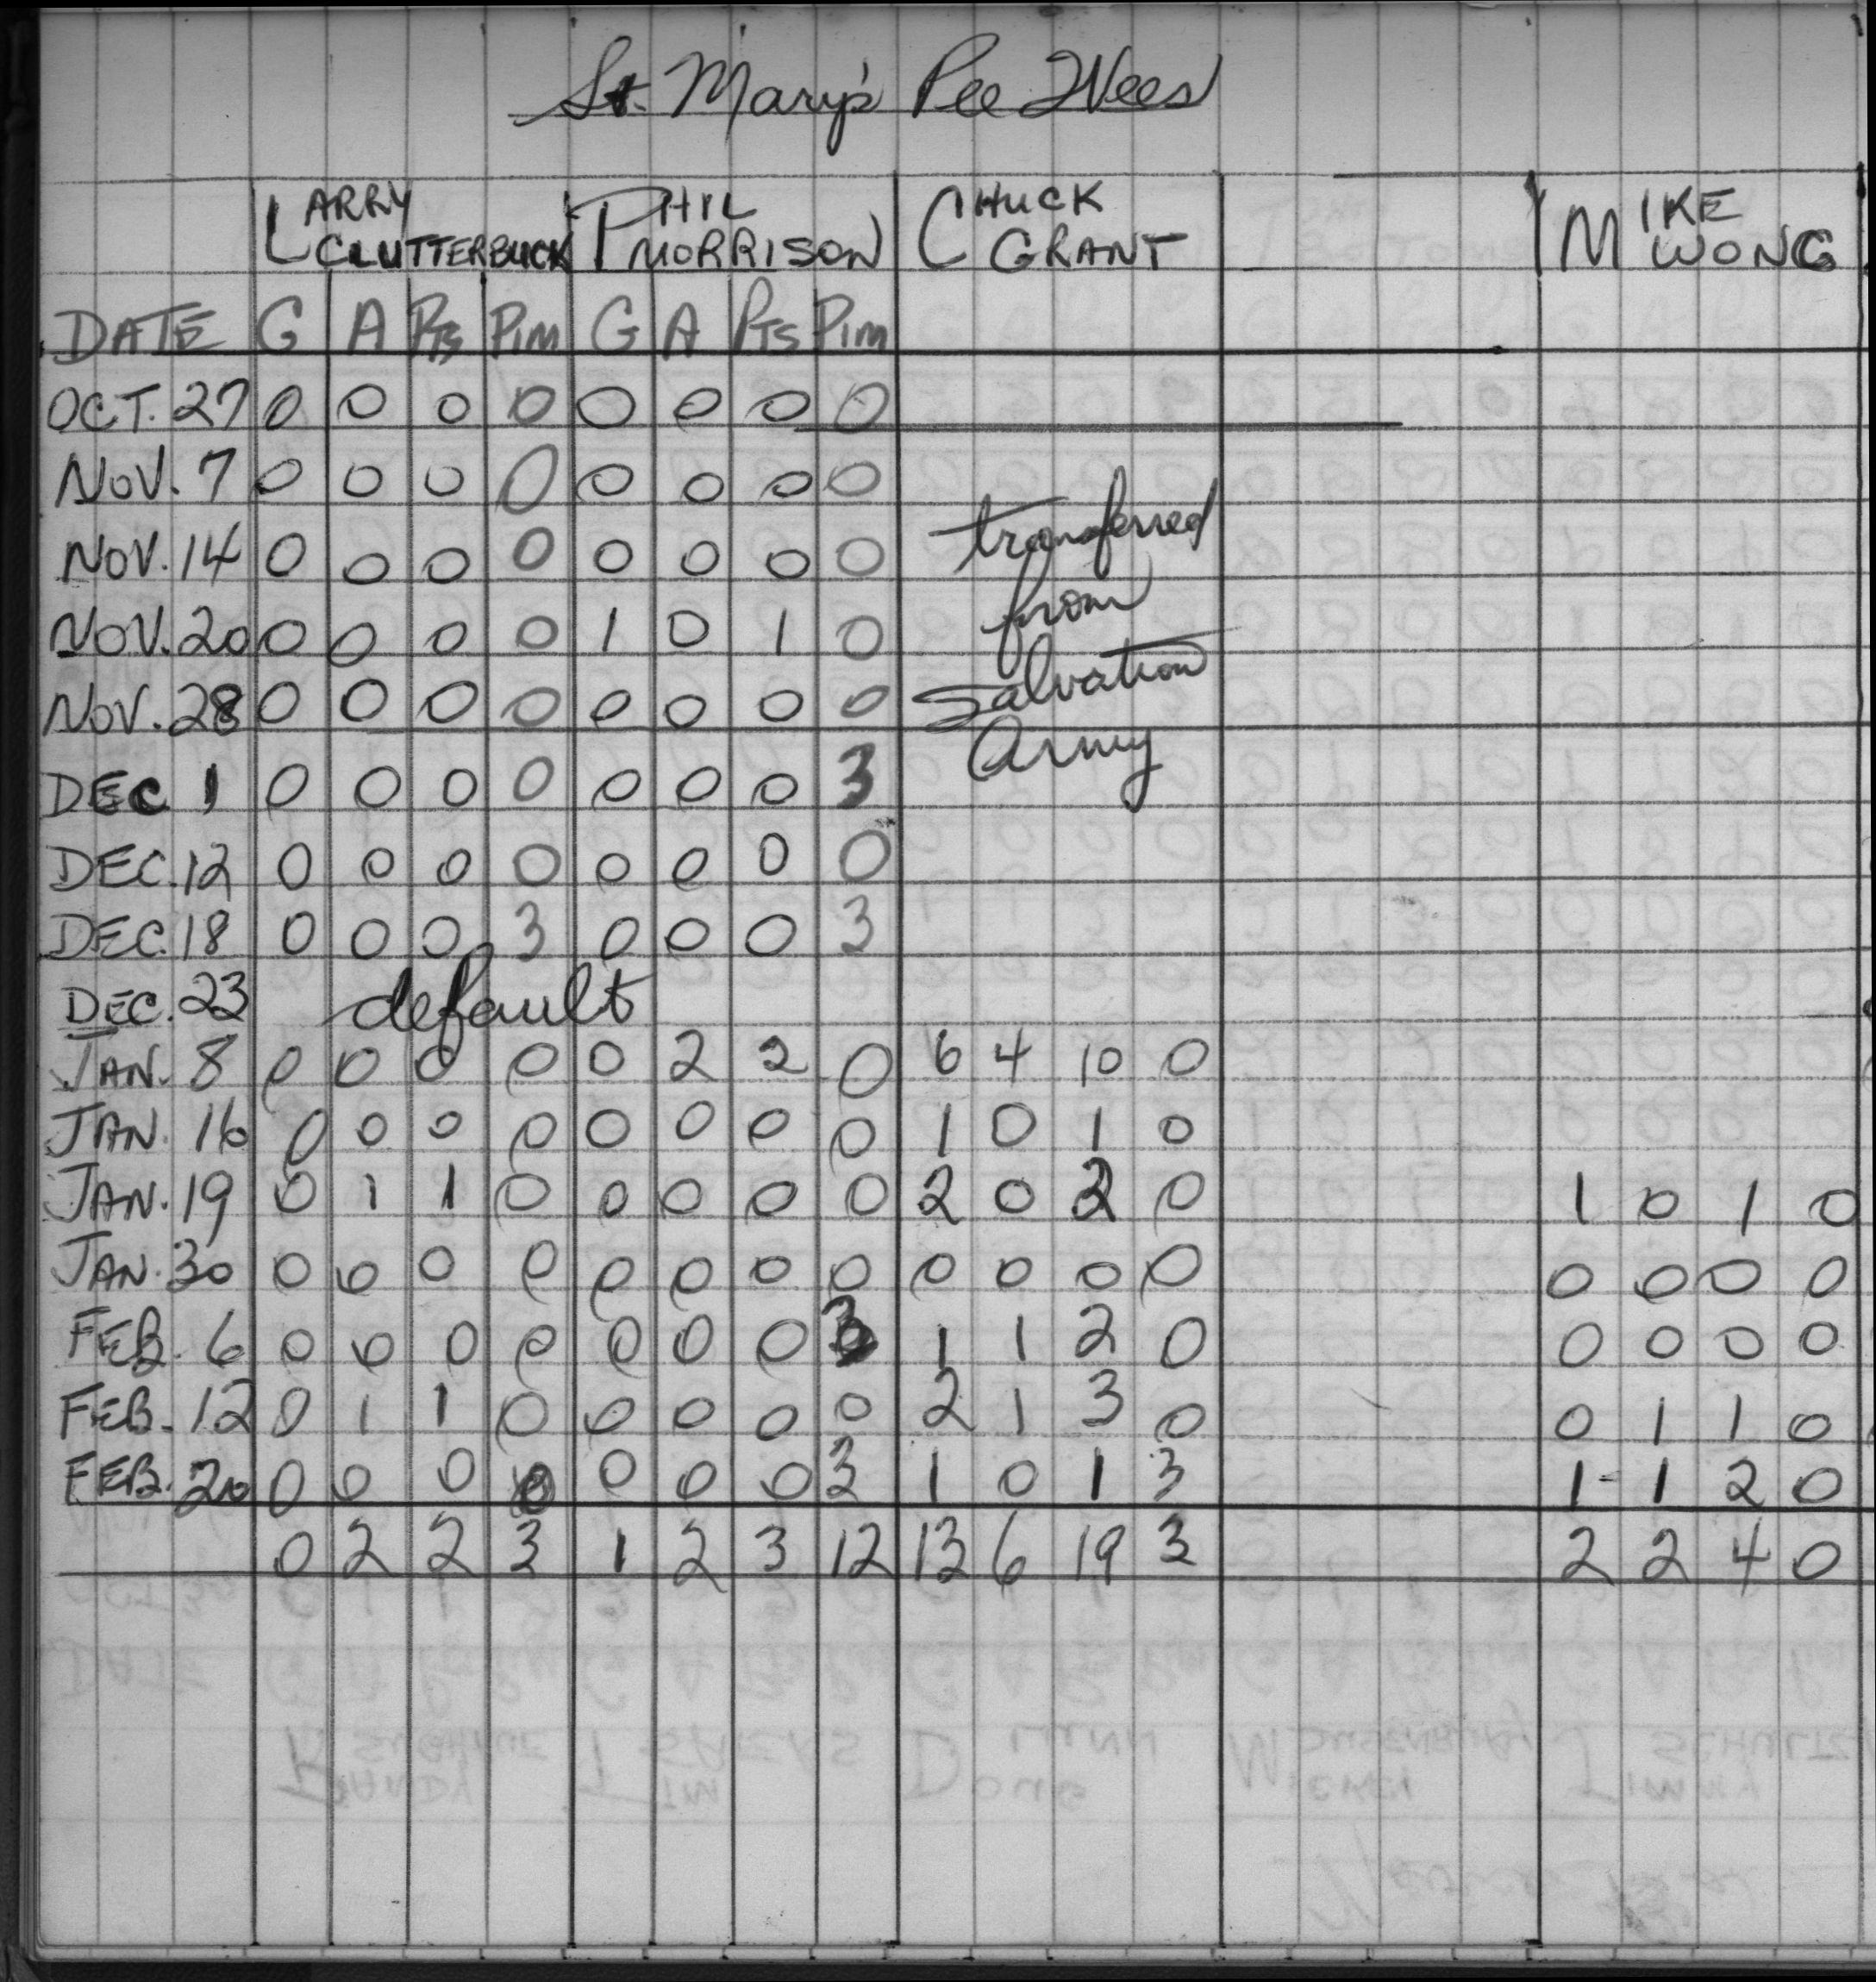 St. Mary's Pee Wees
LARRY CLUTTERBUCK PHIL MORRISON CHUCK GRANT MIKE WONG
DATE G A Pts Pim G A Pts Pim
OCT. 27 0 0 0 0 0 0 0 0
NOV. 7 0 0 0 0 0 0 0 0
NOV. 14 0 0 0 0 0 0 0 0
NOV. 20 0 0 0 0 1 0 1 0
NOV. 28 0 0 0 0 0 0 0 0
transferred
from
Salvation
Army
DEC 1 0 0 0 0 0 0 0 3
DEC. 12 0 0 0 0 0 0 0 0
DEC. 18 0 0 0 3 0 0 0 3
DEC. 23 default
JAN. 8 0 0 0 0 0 2 2 0 6 4 10 0
JAN. 16 0 0 0 0 0 0 0 0 1 0 1 0
JAN. 19 0 1 1 0 0 0 0 0 2 0 2 0 1 0 1 0
JAN. 30 0 0 0 0 0 0 0 0 0 0 0 0 0 0 0 0
FEB. 6 0 0 0 0 0 0 0 3 1 1 2 0 0 0 0 0
FEB. 12 0 1 1 0 0 0 0 0 2 1 3 0 0 1 1 0
FEB. 20 0 0 0 0 0 0 0 3 1 0 1 3 1 1 2 0
0 2 2 3 1 2 3 12 13 6 19 3 2 2 4 0